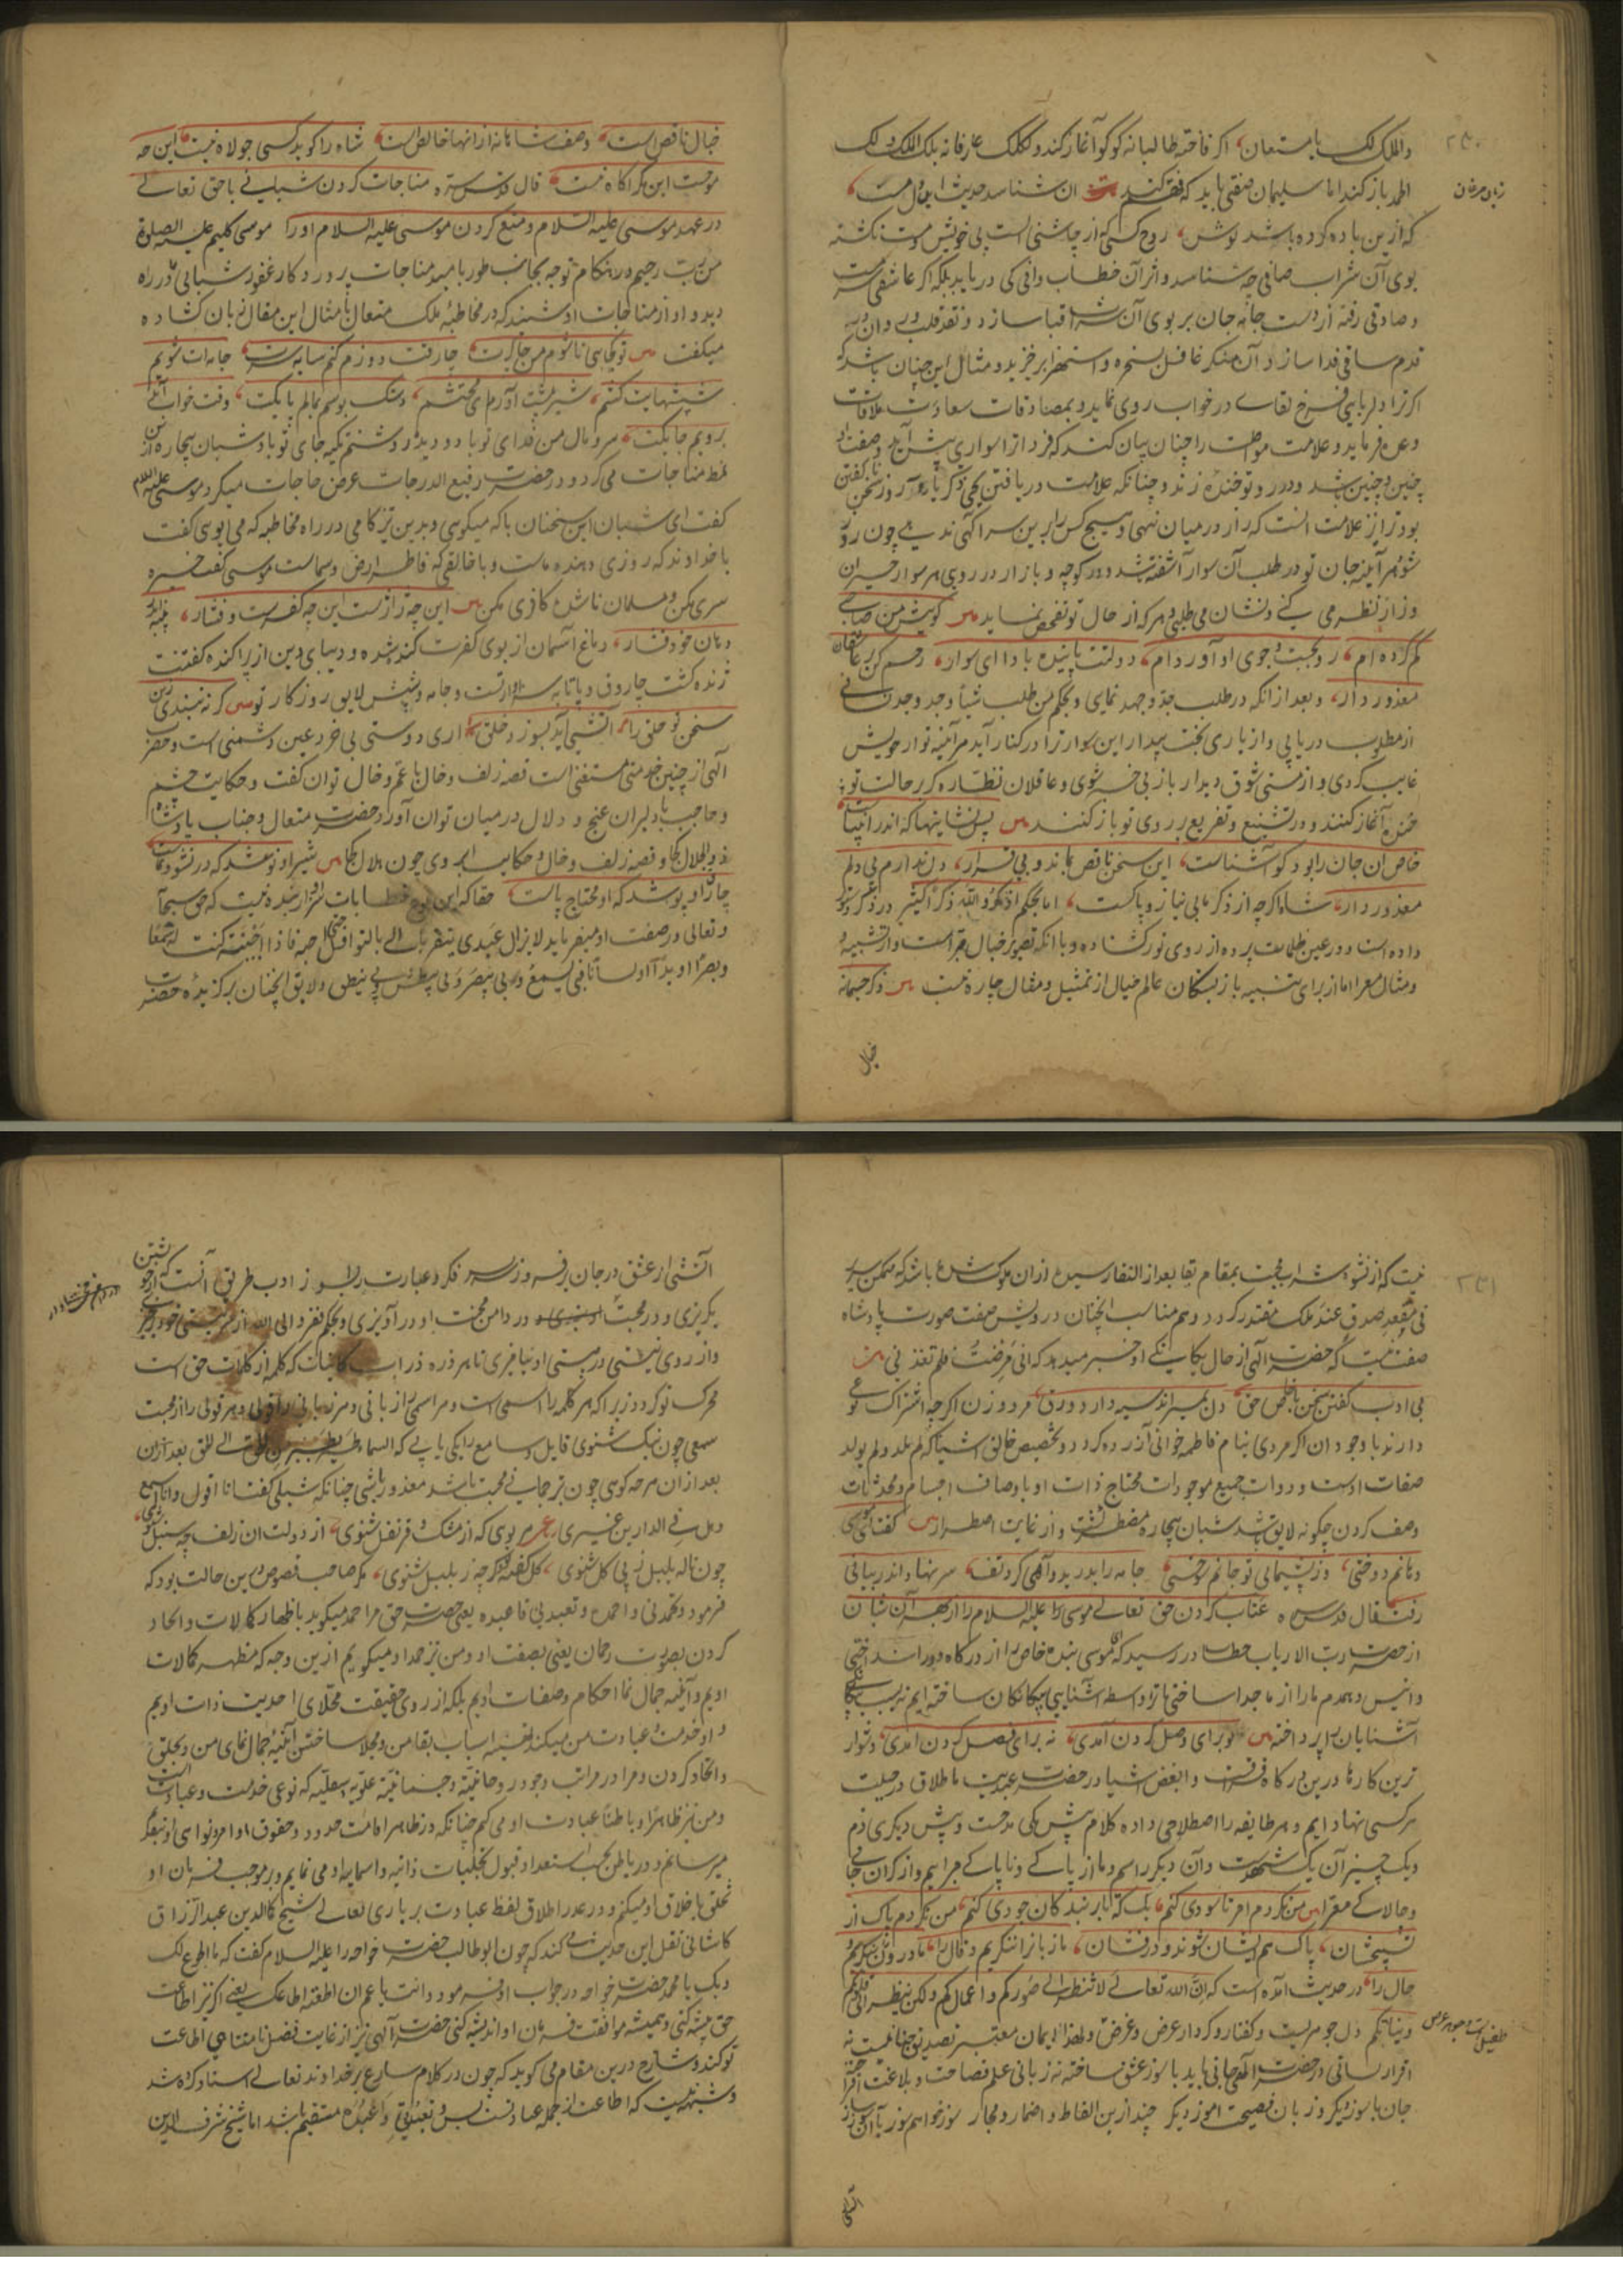 واللک لک یا مستعان اگر فاخته طالبانه کوکو آغاز کند و لکلک عارفانه بلک الملک لک
الحمد باز کند اما سلیمان صفتی باید که فهم کند آن شناسد حدیث این دل مست
که ازین باده کرده باشد نوش روح کسی که از چاشنی الست بی خویش و مست نگشته
بوی آن شراب صافی چه شناسد و اثر آن خطاب وافی کی دریابد بلکه اگر عاشقی
و صادقی رفته از دست جامه جان بر بوی آن شراب قبا سازد و نقد قلب و روان در
قدم ساقی فدا سازد آن منکر غافل بسخره و استهزا برخیزد و مثال این چنان باشد که
اگر ترا دلربایی فرخ لقای در خواب روی نماید و بمصادقات سعادت ملاقات
وعده فرماید و علامت مواصلت را چنان بیان کند که فردا ترا سواری پیش آید
چنین و چنین شد و در روی تو خنده زند و چنانکه علامت دریافتن یحیی زکریا را
بود ترا نیز علامت آنست که راز در میان نهی و هیچ کس را برین سر آگهی ندهی چون روز
شود هر آینه جان تو در طلب آن سوار آشفته شود و در کوچه و بازار در روی هر سوار حیران
وزار نظر می کنی و نشان می طلبی و هر که از حال تو تفحص نماید س گویش من صاحبی
گم کرده ام رو بجست و جوی او آورده ام دولتت پاینده بادا ای سوار رحم کن بر عاشقان
معذور دار و بعد از آنکه در طلب جد و جهد نمایی و بحکم من طلب شیأ و جد وجد نشانی
از مطلوب دریابی و از یاری بخت بیدار این سوار ترا در کنار آید هر آینه تو از خویش
غایب گردی و از مستی شوق دیدار یار بی خبر شوی و عاقلان نظاره گر بر حالت تو
آغاز کنند و در تشنیع و تقریع بر روی تو باز کنند س پس نشانیها که اندر انبیاست
خاص آن جان را بود کو آشناست این سخن ناقص بماند و بی قرار دل ندارم بی دلم
معذور دار شاه اگر چه از ذکر ما بی نیاز و پاکست اما بحکم اذکروا الله ذکرا کثیرا
داده است و در عین ظلمات پرده از روی نور گشاده و با آنکه تصویر خیال مبراست و از تشبیه
و مثال معرا اما از برای تنبیه بازبستگان عالم خیال از تمثیل و مقال چاره نیست س ذکر جسمانه
خیال
زبان مرغان
خیال ناقص است وصف شاهانه از آنها خالص است شاه را گوید کسی جولاه نیست این چه
مدحست این مگر آگاه نیست قال قدس سره مناجات کردن شبانی با حق تعالی
در عهد موسی علیه السلام و منع کردن موسی علیه السلام او را موسی کلیم علیه الصلوة
من رب رحیم در هنگام توجه بجانب طور بامید مناجات پروردگار غفور شبانی در راه
دید و آواز مناجات او شنید که در مخاطبه ملک متعال بامثال این مقال زبان گشاده
میگفت س تو کجایی تا شوم من چاکرت چارقت دوزم کنم شانه سرت جامه ات شویم
شپشهایت کشم شیر پیشت آورم ای محتشم دستک بوسم بمالم پایکت وقت خواب آید
بروبم جایکت سر و مال من فدای تو باد و دیده روشنم تکیه جای تو باد شبان بیچاره ازین
نمط مناجات می کرد و در حضرت رفیع الدرجات عرض حاجات میکرد موسی علیه السلام
گفت ای شبان این سخنان با که میگویی و بدین تیزگامی در راه مخاطبه که می پویی گفت
با خداوند که روزی دهنده ماست و با خالقی که فاطر ارض و سماست موسی گفت خیره
سری مکن و مسلمان ناشده کافری مکن س این چه ژاژست این چه کفرست و فشار پنبه
دهان خود فشار دماغ آسمان از بوی کفرت گنده شده و دیبای دین از پراکنده گفتنت
ژنده گشت چاروق و پاتابه سزاوار تست و جامه و شپش لایق روزگار تو س گر نبندی زین
سخن تو حلق را آتشی آید بسوزد خلق را آری دوستی بی خرد عین دشمنی است و حضرت
الهی از چنین خدمتی مستغنی است قصه زلف و خال با عم و خال توان گفت و حکایت چشم
و حاجب با دلبران غنج و دلال در میان توان آورد حضرت متعال و جناب پادشاه
ذو الجلال کجا و قصه زلف و خال و حکایت ابروی چون هلال کجا س شیر او نوشد که در نشو و نماست
چارق او پوشد که او محتاج پاست حقا که این نوع خطابات سزاوار بنده نیست که حق سبحانه
و تعالی در صفت او میفرماید لا یزال عبدی یتقرب الی بالنوافل حتی احبه فاذا احببته کنت له سمعا
و بصرا و یدا و لسانا فبی یسمع و بی یبصر و بی یبطش و بی ینطق و لایق آنچنان برگزیده حضرت
نیست که از نشوه شراب محبت بمقام بقا بعد از
فی مقعد صدق عند ملیک مقتدر گردد و هم مناسب آنچنان درویش صفت صورت پادشاه
صفت نیست که حضرت الهی از حال یگانگی او خبر میدهد که انی مرضت فلم تعدنی س
بی ادب گفتن سخن با خاص حق دل بمیراند سیه دارد ورق مرد و زن اگر چه اشتراک نوعی
دارند با وجود آن اگر مردی بنام فاطمه خوانی آزرده گردد و تخصیص خالق اشیا که لم یلد و لم یولد
صفات اوست و ذوات جمیع موجودات محتاج ذات او باوصاف اجسام و محدثات
وصف کردن چگونه لایق باشد شبان بیچاره مضطر گشت و از غایت اضطرار س گفت ای موسی
دهانم دوختی وز پشیمانی تو جانم سوختی جامه را بدرید و آهی کرد تفت سر نهاد اندر بیابانی
برفت قال قدس سره عتاب کردن حق تعالی موسی را علیه السلام را از بهر آن شبان
از حضرت رب الارباب خطاب در رسید که ای موسی بنده خاص را از درگاه دور انداختی
و انیس و همدم ما را از ما جدا ساختی ما ترا واسطه آشنایی بیگانگان ساخته ایم نه سبب بیگانگی
آشنایان پرداخته س تو برای وصل کردن آمدی نه برای فصل کردن آمدی دشوار
ترین کارها درین درگاه فرقت و ابغض اشیا در حضرت عبدیت ما طلاق در جبلت
هر کسی نهاده ایم و هر طایفه را اصطلاحی داده کلام پیش یکی مدحست و پیش دیگری ذم
و یک چیز آن یک شهدست و آن دیگر را سم و ما از پاکی و ناپاکی مبراییم و از گران جانی
و چالاکی معرا س من نکردم امر تا سودی کنم بلک تا بر بندگان جودی کنم من نگردم پاک از
تسبیحشان پاک هم ایشان شوند و درفشان ما زبان را ننگریم و قال را ما درون را بنگریم
حال را در حدیث آمده است که ان الله تعالی لا ینظر الی صورکم و اعمالکم ولکن ینظر الی قلوبکم
و نیاتکم دل جوهریست و گفتار و کردار عرض و غرض و لهذا ایمان معتبر تصدیق جنانیست نه
اقرار لسانی در حضرت الهی جانی باید با سوز عشق ساخته نه زبانی علم فصاحت و بلاغت افراخته
جان ما سوز دیگر و زبان فصیحت آموز دیگر چند ازین الفاظ و اضمار و مجاز سوز خواهم سوز با آن سوز ساز
آتشی
طفیل است و جوهر عرض
آتشی از عشق در جان برفروز سربسر فکر و عبارت را بسوز ادب طریق آنست که از خویشتن
بگریزی و در محبت در دامن محبت او درآویزی و بحکم ففروا الی الله از هستی خود
و از روی نیستی در هستی او بیامیزی تا هر ذره ذرات کاینات که کلمه از کلمات حق است
محرک تو گردد زیرا که هر کلمه را اسمی است و هر اسمی را زبانی و هر زبانی را قولی و هر قولی را از محبت
سمعی چون نیک شنوی قایل و سامع را یکی یابی که السماع
بعد از آن هر چه گویی چون ترجمانی محبت باشد معذور باشی چنانکه شبلی گفت انا اقول و انا اسمع
و هل فی الدارین غیری هر بوی که از مشک و قرنفل شنوی از دولت آن زلف چو سنبل شنوی
چون ناله بلبل ز پی گل شنوی گل گفته بود گر چه ز بلبل شنوی مگر صاحب فصوص درین حالت بود که
فرمود فیحمدنی و احمده و یعبدنی فاعبده یعنی حضرت حق مرا حمد میگوید باظهار کمالات و ایجاد
کردن بصورت رحمان یعنی بصفت او و من نیز حمد او میگویم ازین وجه که مظهر کمالات
اویم و آینه جمال نما احکام و صفات اویم بلکه از روی حقیقت مجلای احدیت ذات اویم
و او خدمت و عبادت من میکند بتهیه اسباب بقا من و مجلا ساختن آینه جمال نمای من و بخلق
و ایجاد کردن و مرا در مراتب وجود روحانیه و جسمانیه علویه و سفلیه که نوعی خدمت و عبادتست
و من نیز ظاهرا و باطنا عبادت او می کنم چنانکه در ظاهر اقامت حدود و حقوق اوامر و نواهی او
میرسانم و در باطن بحسب استعداد قبول تجلیات ذاتیه و اسماییه او می نمایم و بر موجب فرمان او
تخلق باخلاق او میکنم و در عذر اطلاق لفظ عبادت بر باری تعالی شیخ کمال الدین عبد الرزاق
کاشانی نقل این حدیث کند که چون ابوطالب حضرت خواجه را علیه السلام گفت که ما اطوع لک
ربک یا محمد حضرت خواجه در جواب او فرمود و انت یا عم ان اطعته اطاعک یعنی اگر نیز اطاعت
حق پیشه کنی و همیشه موافقت فرمان او اندیشه کنی حضرت الهی نیز از غایت فضل نامتناهی اطاعت
تو کند و شارح درین مقام می گوید که چون در کلام شارع بر خداوند تعالی اسناد کرده شد
و شبهه نیست که اطاعت از جمله عبادتست پس و یعبدنی و اعبده مستقیم باشد اما شیخ شرف الدین